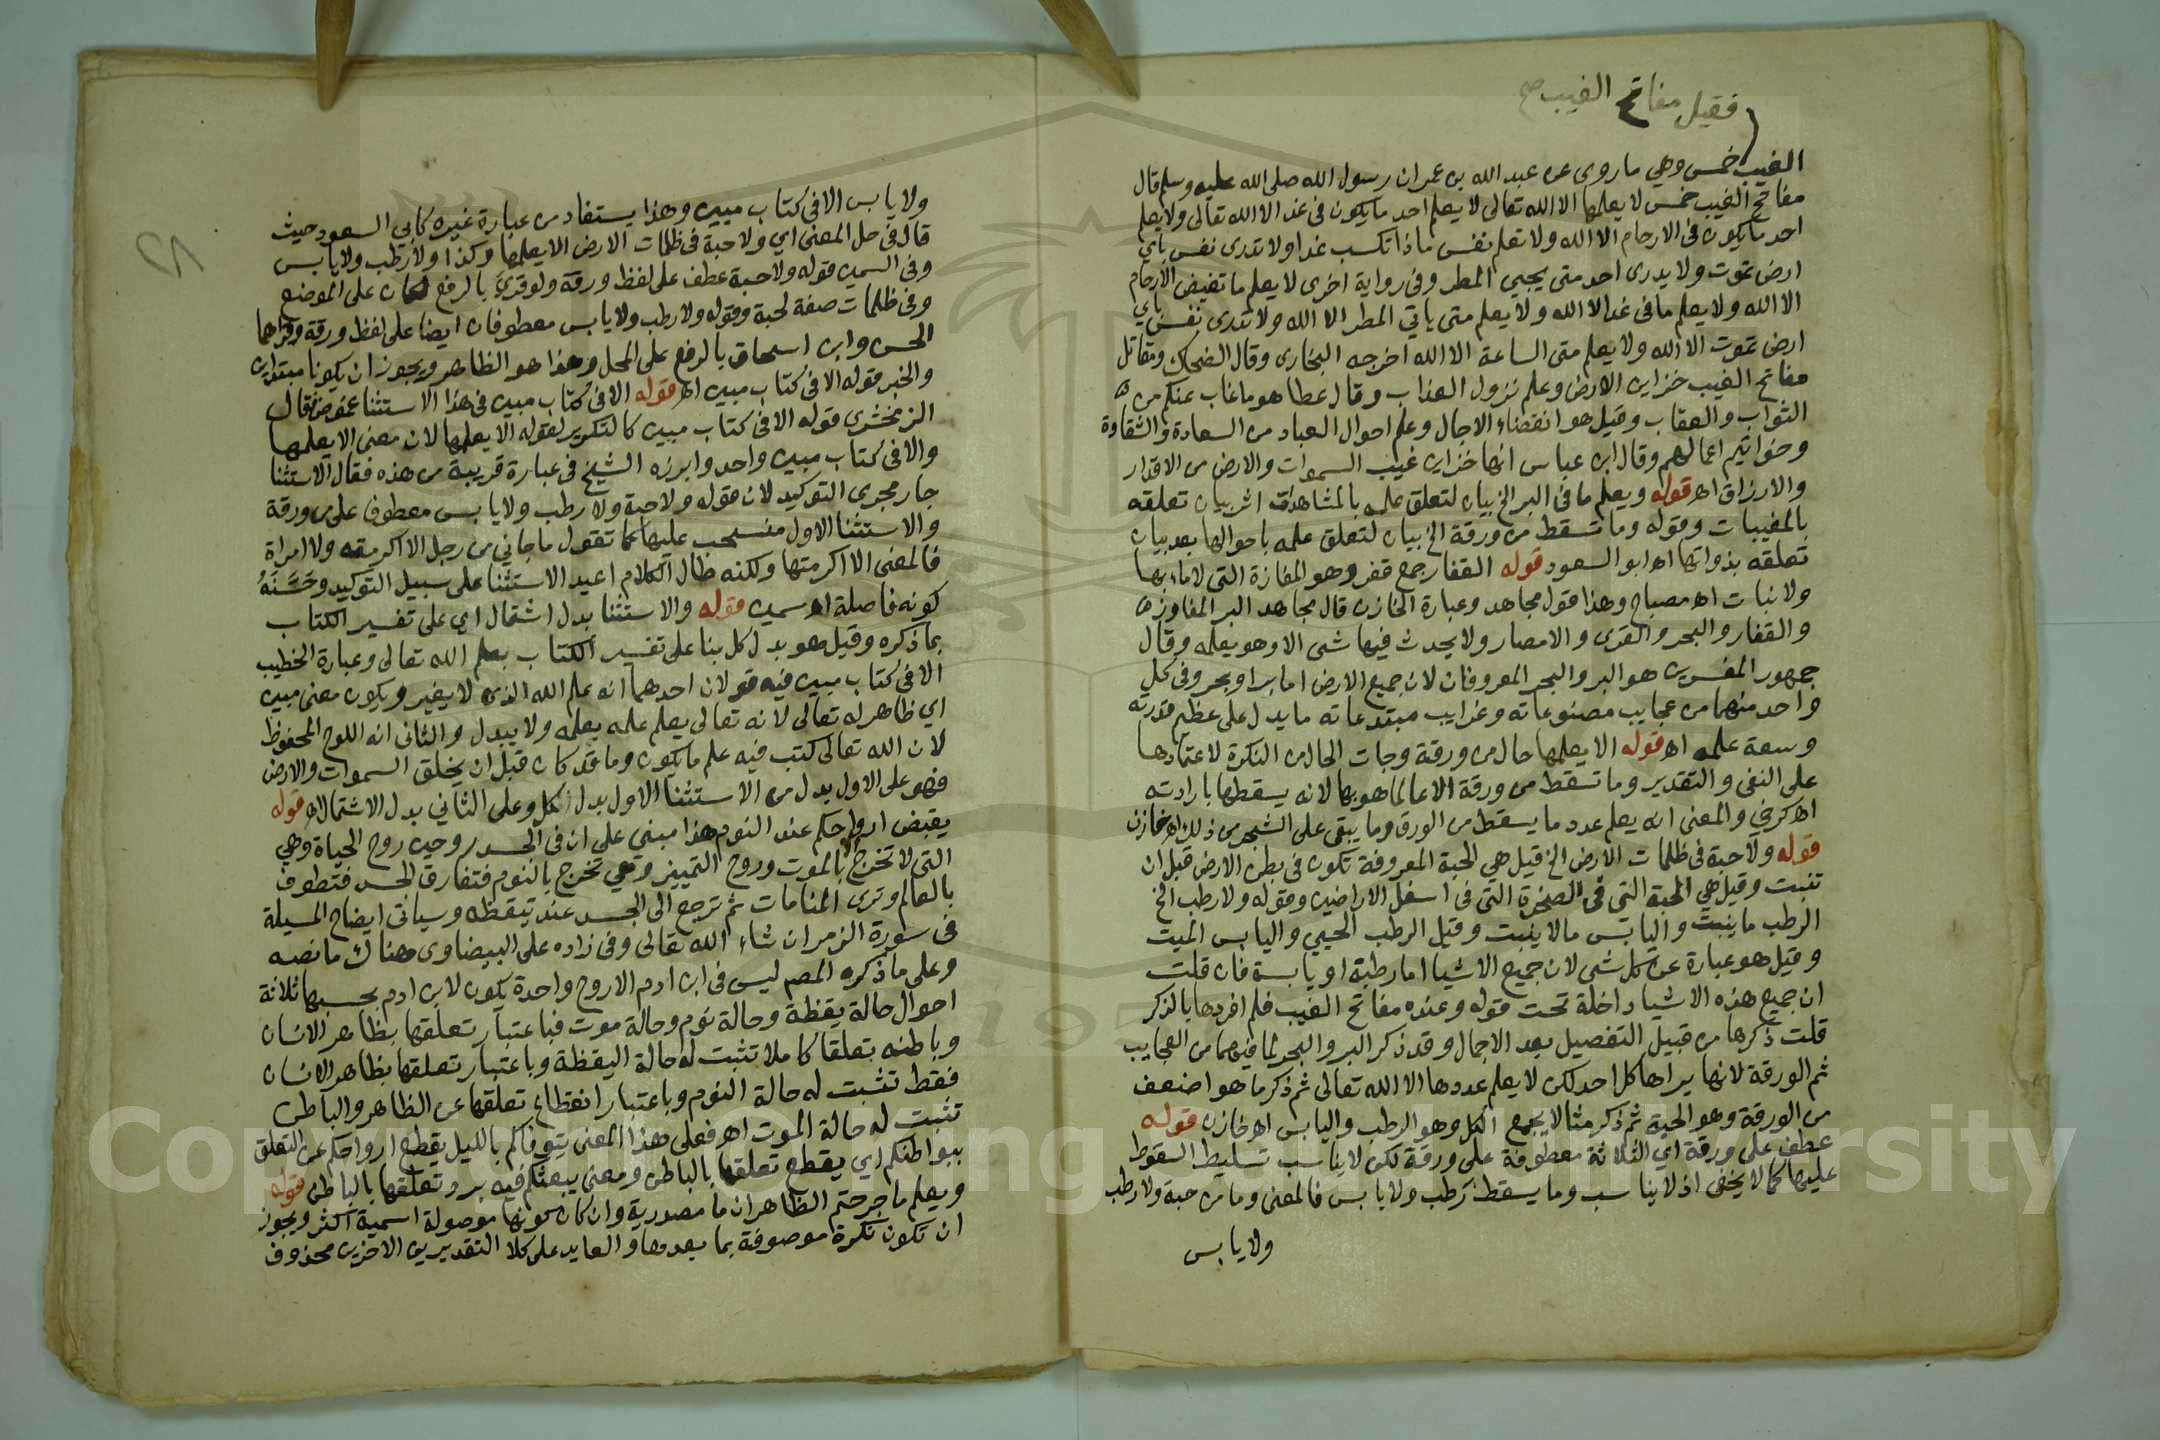 فقيل مفاتح الغيب صح
الغيب خمس وهي ما روى عن عبد الله بن عمر ان رسول الله صلى الله عليه وسلم قال
مفاتح الغيب خمس لا يعلمها الا الله تعالى لا يعلم احد ما يكون في غد الا الله تعالى ولا يعلم
احد ما يكون في الارحام الا الله ولا تعلم نفس ماذا تكسب غدا ولا تدرى نفس باي
ارض تموت ولا يدرى احد متى يجيي المطر وفي رواية اخرى لا يعلم ما تغيض الارحام
الا الله ولا يعلم ما في غد الا الله ولا يعلم متى ياتي المطر الا الله ولا تدرى نفس باي
ارض تموت الا الله ولا يعلم متى الساعة الا الله اخرجه البخارى وقال الضحاك ومقاتل
مفاتح الغيب خزاين الارض وعلم نزول العذاب وقال عطا هو ما غاب عنكم من
الثواب والعقاب وقيل هو انقضاء الاجال وعلم احوال العباد من السعادة والشقاوة
وخواتيم اعمالهم وقال ابن عباس انها خزاين غيب السموات والارض من الاقدار
والارزاق اه قوله ويعلم ما في البر الخ بيان لتعلق علمه بالمشاهدات اثر بيان تعلقه
بالمغيبات وقوله وما تسقط من ورقة الخ بيان لتعلق علمه باحوالها بعد بيان
تعلقه بذواتها اه ابو السعود قوله القفار جمع قفر وهو المفازة التي لا ماء بها
ولا نبات اه مصباح وهذا قول مجاهد وعبارة الخازن قال مجاهد البر المفاوز
والقفار والبحر والقرى والامصار ولا يحدث فيها شى الا وهو يعلمه وقال
جمهور المفسرين هو البر والبحر المعروفان لان جميع الارض اما بر او بحر وفي كل
واحد منهما من عجايب مصنوعاته وغرايب مبتدعاته ما يدل على عظيم قدرته
وسعة علمه اه قوله الا يعلمها حال من ورقة وجات الحال من النكرة لاعتمادها
على النفي والتقدير وما تسقط من ورقة الا عالما هو بها لانه يسقطها بارادته
اه كرخي والمعنى انه يعلم عدد ما يسقط من الورق وما يبقى على الشجر من ذلك اه خازن
قوله ولا حبة في ظلمات الارض الخ قيل هي الحبة المعروفة تكون في بطن الارض قبل ان
تنبت وقيل هي الحبة التي في الصخرة التي في اسفل الاراضين وقوله ولا رطب الخ
الرطب ما ينبت واليابس ما لا ينبت وقيل الرطب الحيي واليابس الميت
وقيل هو عبارة عن كل شى لان جميع الاشيا اما رطبة او يابسة فان قلت
ان جميع هذه الاشيا داخلة تحت قوله وعنده مفاتح الغيب فلم افردها بالذكر
قلت ذكرها من قبيل التفصيل بعد الاجمال وقد ذكر البر والبحر لما فيهما من العجايب
ثم الورقة لانها يراها كل احد لكن لا يعلم عددها الا الله تعالى ثم ذكر ما هو اضعف
من الورقة وهو الحبة ثم ذكر مثالا يجمع الكل وهو الرطب واليابس اه خازن قوله
عطف على ورقة اي الثلاثة معطوفة على ورقة لكن لا يناسب تسليط السقوط
عليها كما لا يخفى اذ لا يناسب وما يسقط رطب ولا يابس فالمعنى وما من حبة ولا رطب
ولا يابس
ولا يابس الا في كتاب مبين وهذا يستفاد من عبارة غيره كابي السعود حيث
قال في حل المعنى اي ولا حبة في ظلمات الارض الا يعلمها وكذا ولا رطب ولا يابس
وفي السمين قوله ولا حبة عطف على لفظ ورقة ولو قرئ بالرفع لكان على الموضع
وفي ظلمات صفة لحبة وقوله ولا رطب ولا يابس معطوفان ايضا على لفظ ورقة وقراهما
الحسن وابن اسحاق بالرفع على المحل وهذا هو الظاهر ويجوز ان يكونا مبتداين
والخبر قوله الا في كتاب مبين اه قوله الا في كتاب مبين في هذا الاستثنا غموض فقال
الزمخشرى قوله الا في كتاب مبين كالتكرير لقوله الا يعلمها لان معنى الا يعلمها
والا في كتاب مبين واحد وابرزه الشيخ في عبارة قريبة من هذه فقال الاستثنا
جار مجرى التوكيد لان قوله ولا حبة ولا رطب ولا يابس معطوف على من ورقة
والاستثنا الاول منسحب عليها كما تقول ما جاني من رجل الا اكرمته ولا امراة
فالمعنى الا اكرمتها ولكنه طال الكلام اعيد الاستثنا على سبيل التوكيد وحَسَّنَهُ
كونه فاصلة اه سمين قوله والاستثنا بدل اشتمال اي على تفسير الكتاب
بما ذكره وقيل هو بدل كل بنا على تفسير الكتاب بعلم الله تعالى وعبارة الخطيب
الا في كتاب مبين فيه قولان احدهما انه علم الله الذى لا يغير ويكون معنى مبين
اي ظاهر له تعالى لانه تعالى يعلم علمه بعلمه ولا يبدل والثانى انه اللوح المحفوظ
لان الله تعالى كتب فيه علم ما يكون وما قد كان قبل ان يخلق السموات والارض
فهو على الاول بدل من الاستثنا الاول بدل الكل وعلى الثاني بدل الاشتمال اه قوله
يقبض ارواحكم عند النوم هذا مبني على ان في الجسد روحين روح الحياة وهي
التى لا تخرج الا بالموت وروح التمييز وهي تخرج بالنوم فتفارق الجسد فتطوف
بالعالم وترى المنامات ثم ترجع الى الجسد عند تيقظه وسياتى ايضاح المسيلة
في سورة الزمر ان شاء الله تعالى وفي زاده على البيضاوى وهناك ما نصه
وعلى ما ذكره المصر ليس في ابن ادم الا روح واحدة يكون لابن ادم بحسبها ثلاثة
احوال حالة يقظة وحالة نوم وحالة موت فباعتبار تعلقها بظاهر الانسان
وباطنه تعلقا كاملا تثبت له حالة اليقظة وباعتبار تعلقها بظاهر الانسان
فقط تثبت له حالة النوم وباعتبار انقطاع تعلقها عن الظاهر والباطن
تثبت له حالة الموت اه فعلى هذا المعنى يتوفاكم بالليل يقطع ارواحكم عن التعلق
ببواطنكم اي يقطع تعلقها بالباطن ومعنى يبعثكم فيه يرد تعلقها بالباطن قوله
ويعلم ما جرحتم الظاهر ان ما مصدرية وان كان كونها موصولة اسمية اكثر ويجوز
ان تكون نكرة موصوفة بما بعدها والعايد على كلا التقديرين الاخرين محذوف